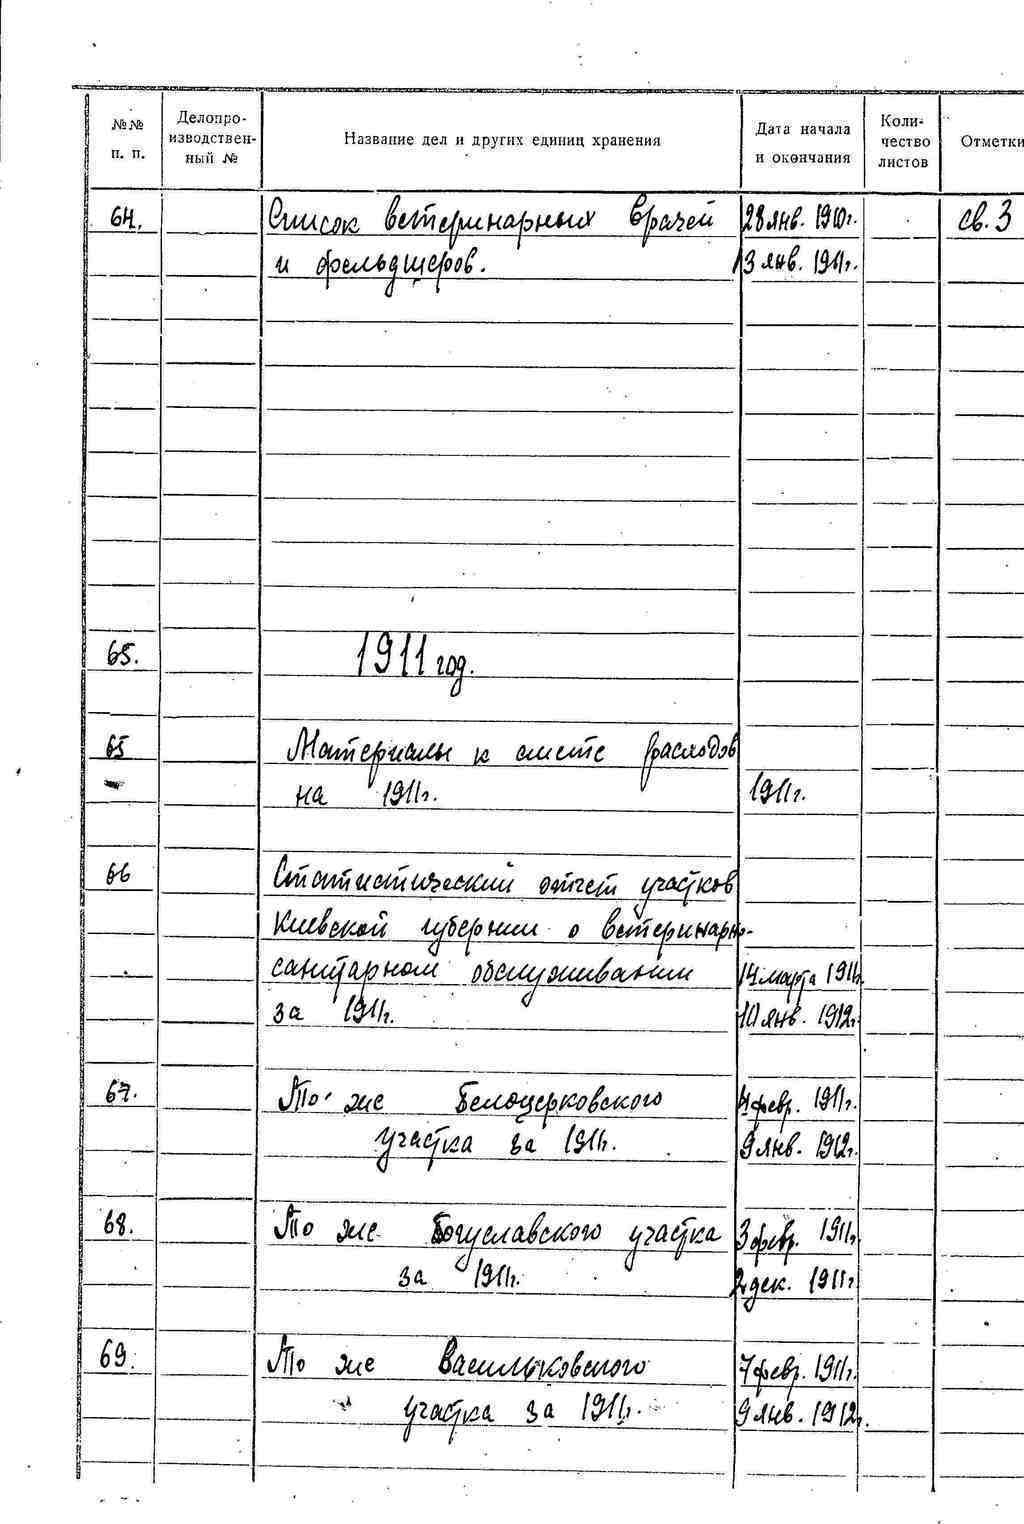 №№ п. п. Делопро- изводствен- ный № Название дел и других единиц хранения Дата начала и окончания Коли- чество листов Отметки
64. Список ветеринарных врачей 28 янв. 1910г. св. 3
и фельдщеров. 13 янв. 1911г.
65. 1911 год.
65 Материалы к смете расходов
на 1911г. 1911г.
66 Статистический отчет участков
Киевской губернии о ветеринарно-
санитарном обслуживании 14 марта 1911г.
за 1911г. 10 янв. 1912г.
67. То же Белоцерковского 4 февр. 1911г.
участка за 1911г. 9 янв. 1912г.
68. То же Богуславского участка 3 февр. 1911г.
за 1911г. 2 дек. 1911г
69. То же Васильковского 7 февр. 1911г.
участка за 1911г. 9 янв. 1912г.